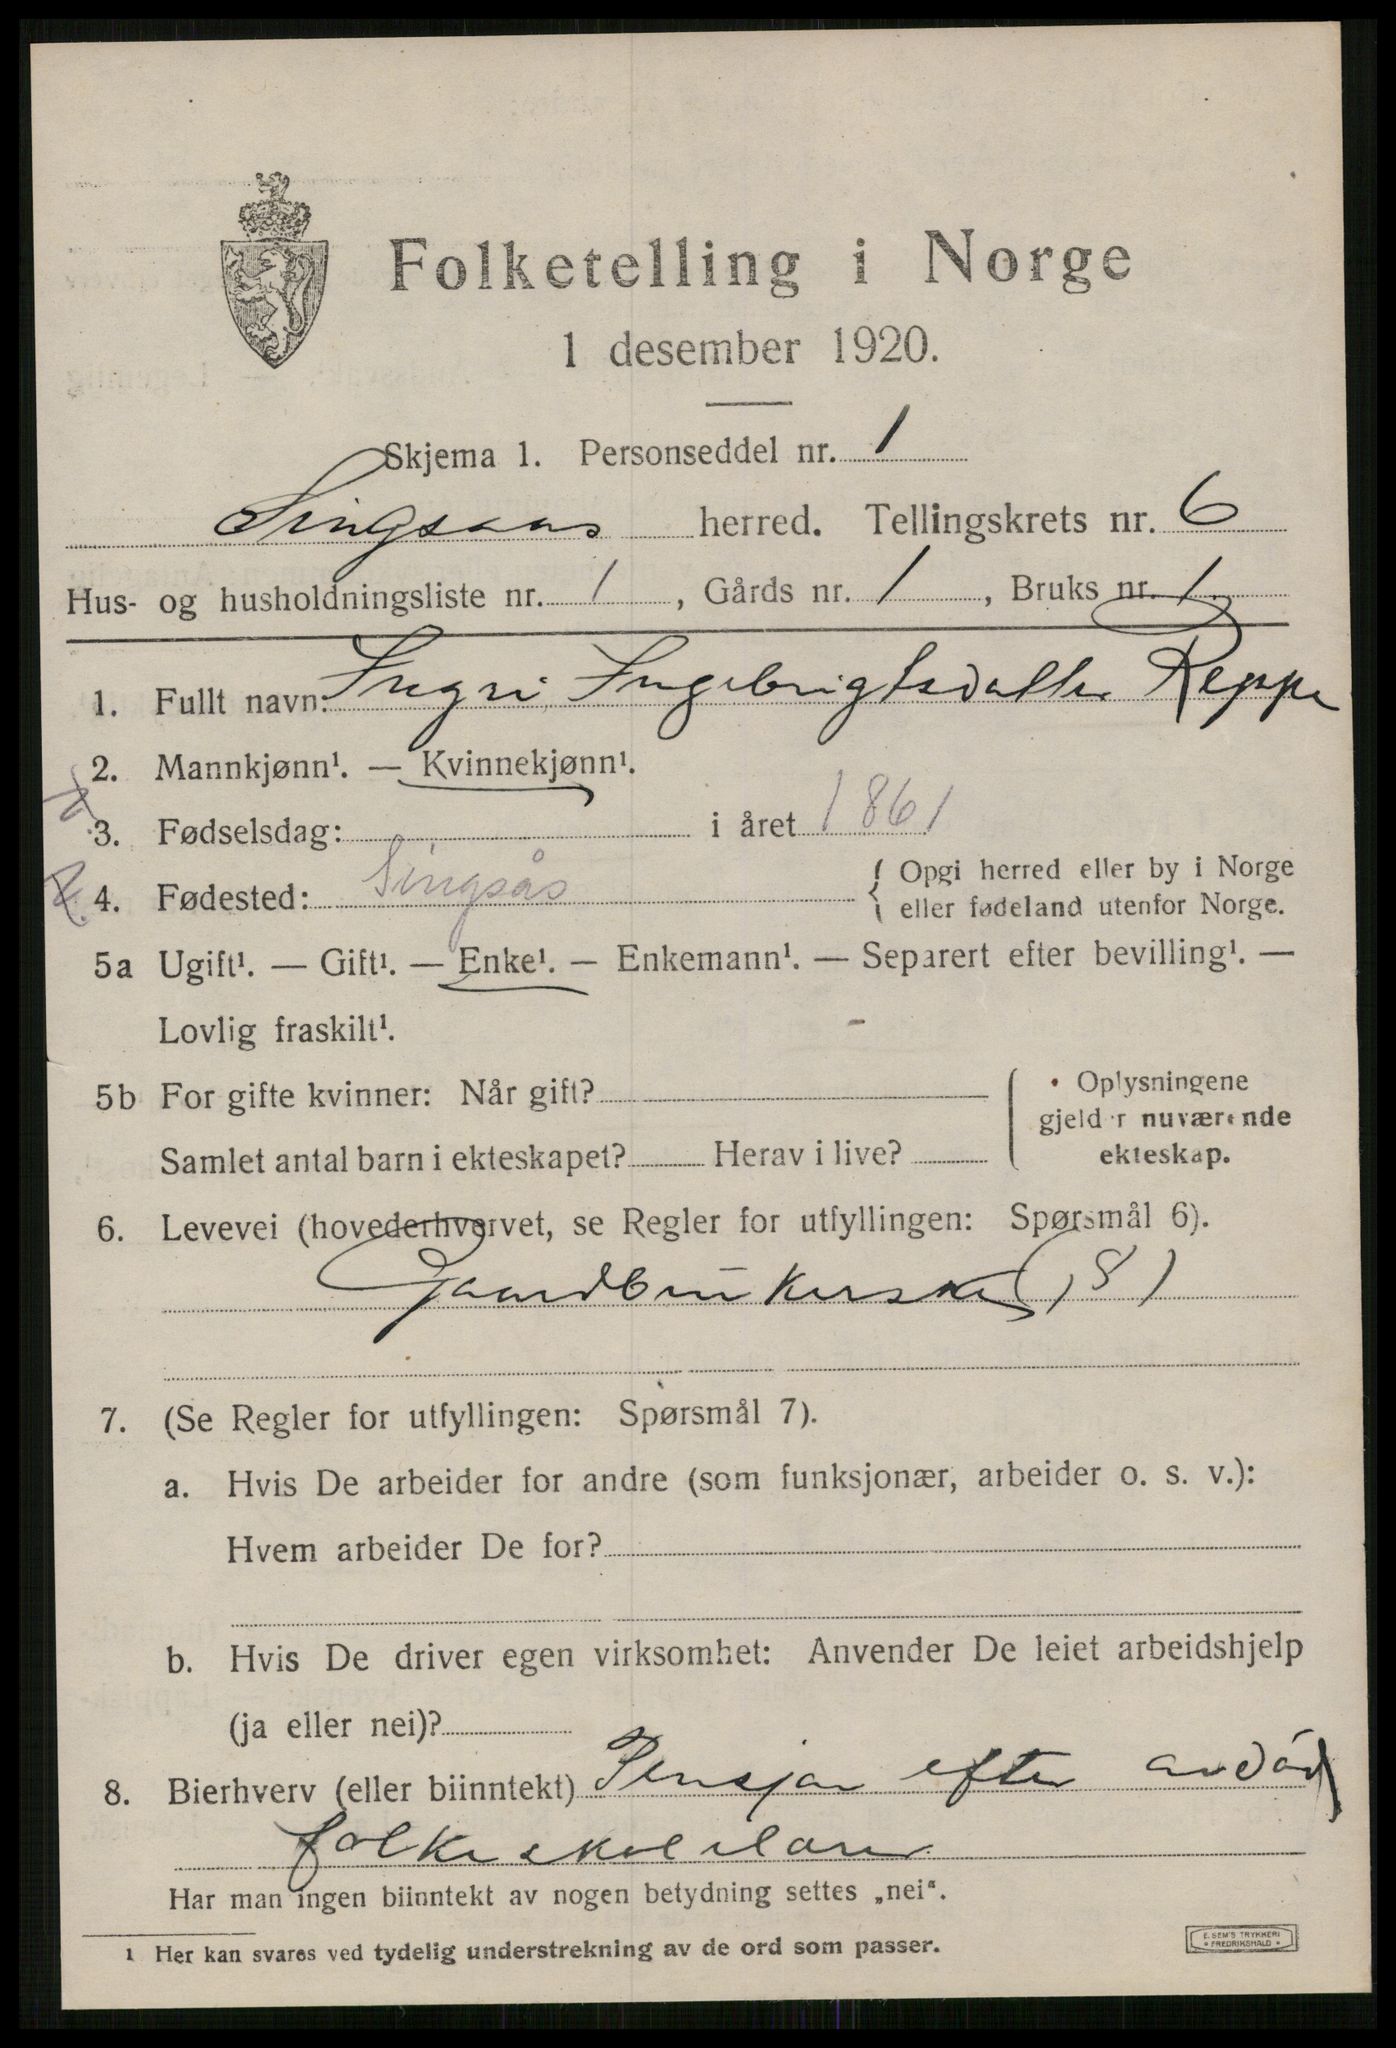 Folketelling i Norge
1 desember 1920.
Skjema 1. Personseddel nr. 1
Singsaas herred. Tellingskrets nr. 6
Hus- og husholdningsliste nr. 1, Gårds nr. 1, Bruks nr. 1.
1. Fullt navn: Ingri Ingebrigtsdatter Reppe
2. Mannkjønn¹. — Kvinnekjønn¹.
3. Fødselsdag: i året 1861
4. Fødested: Singsås { Opgi herred eller by i Norge
eller fødeland utenfor Norge.
5a Ugift¹. — Gift¹. — Enke¹. — Enkemann¹. — Separert efter bevilling¹. —
Lovlig fraskilt¹.
5b For gifte kvinner: Når gift?
Samlet antal barn i ekteskapet? Herav i live?
Oplysningene
gjelder nuværende
ekteskap.
6. Levevei (hovederhvervet, se Regler for utfyllingen: Spørsmål 6).
Gaardbrukerske (S)
7. (Se Regler for utfyllingen: Spørsmål 7).
a. Hvis De arbeider for andre (som funksjonær, arbeider o. s. v.):
Hvem arbeider De for?
b. Hvis De driver egen virksomhet: Anvender De leiet arbeidshjelp
(ja eller nei)?
8. Bierhverv (eller biinntekt) Pensjon efter avdød
folkeskolelærer
Har man ingen biinntekt av nogen betydning settes „nei“.
1 Her kan svares ved tydelig understrekning av de ord som passer.
E. SEM'S TRYKKERI
• FREDRIKSHALD •